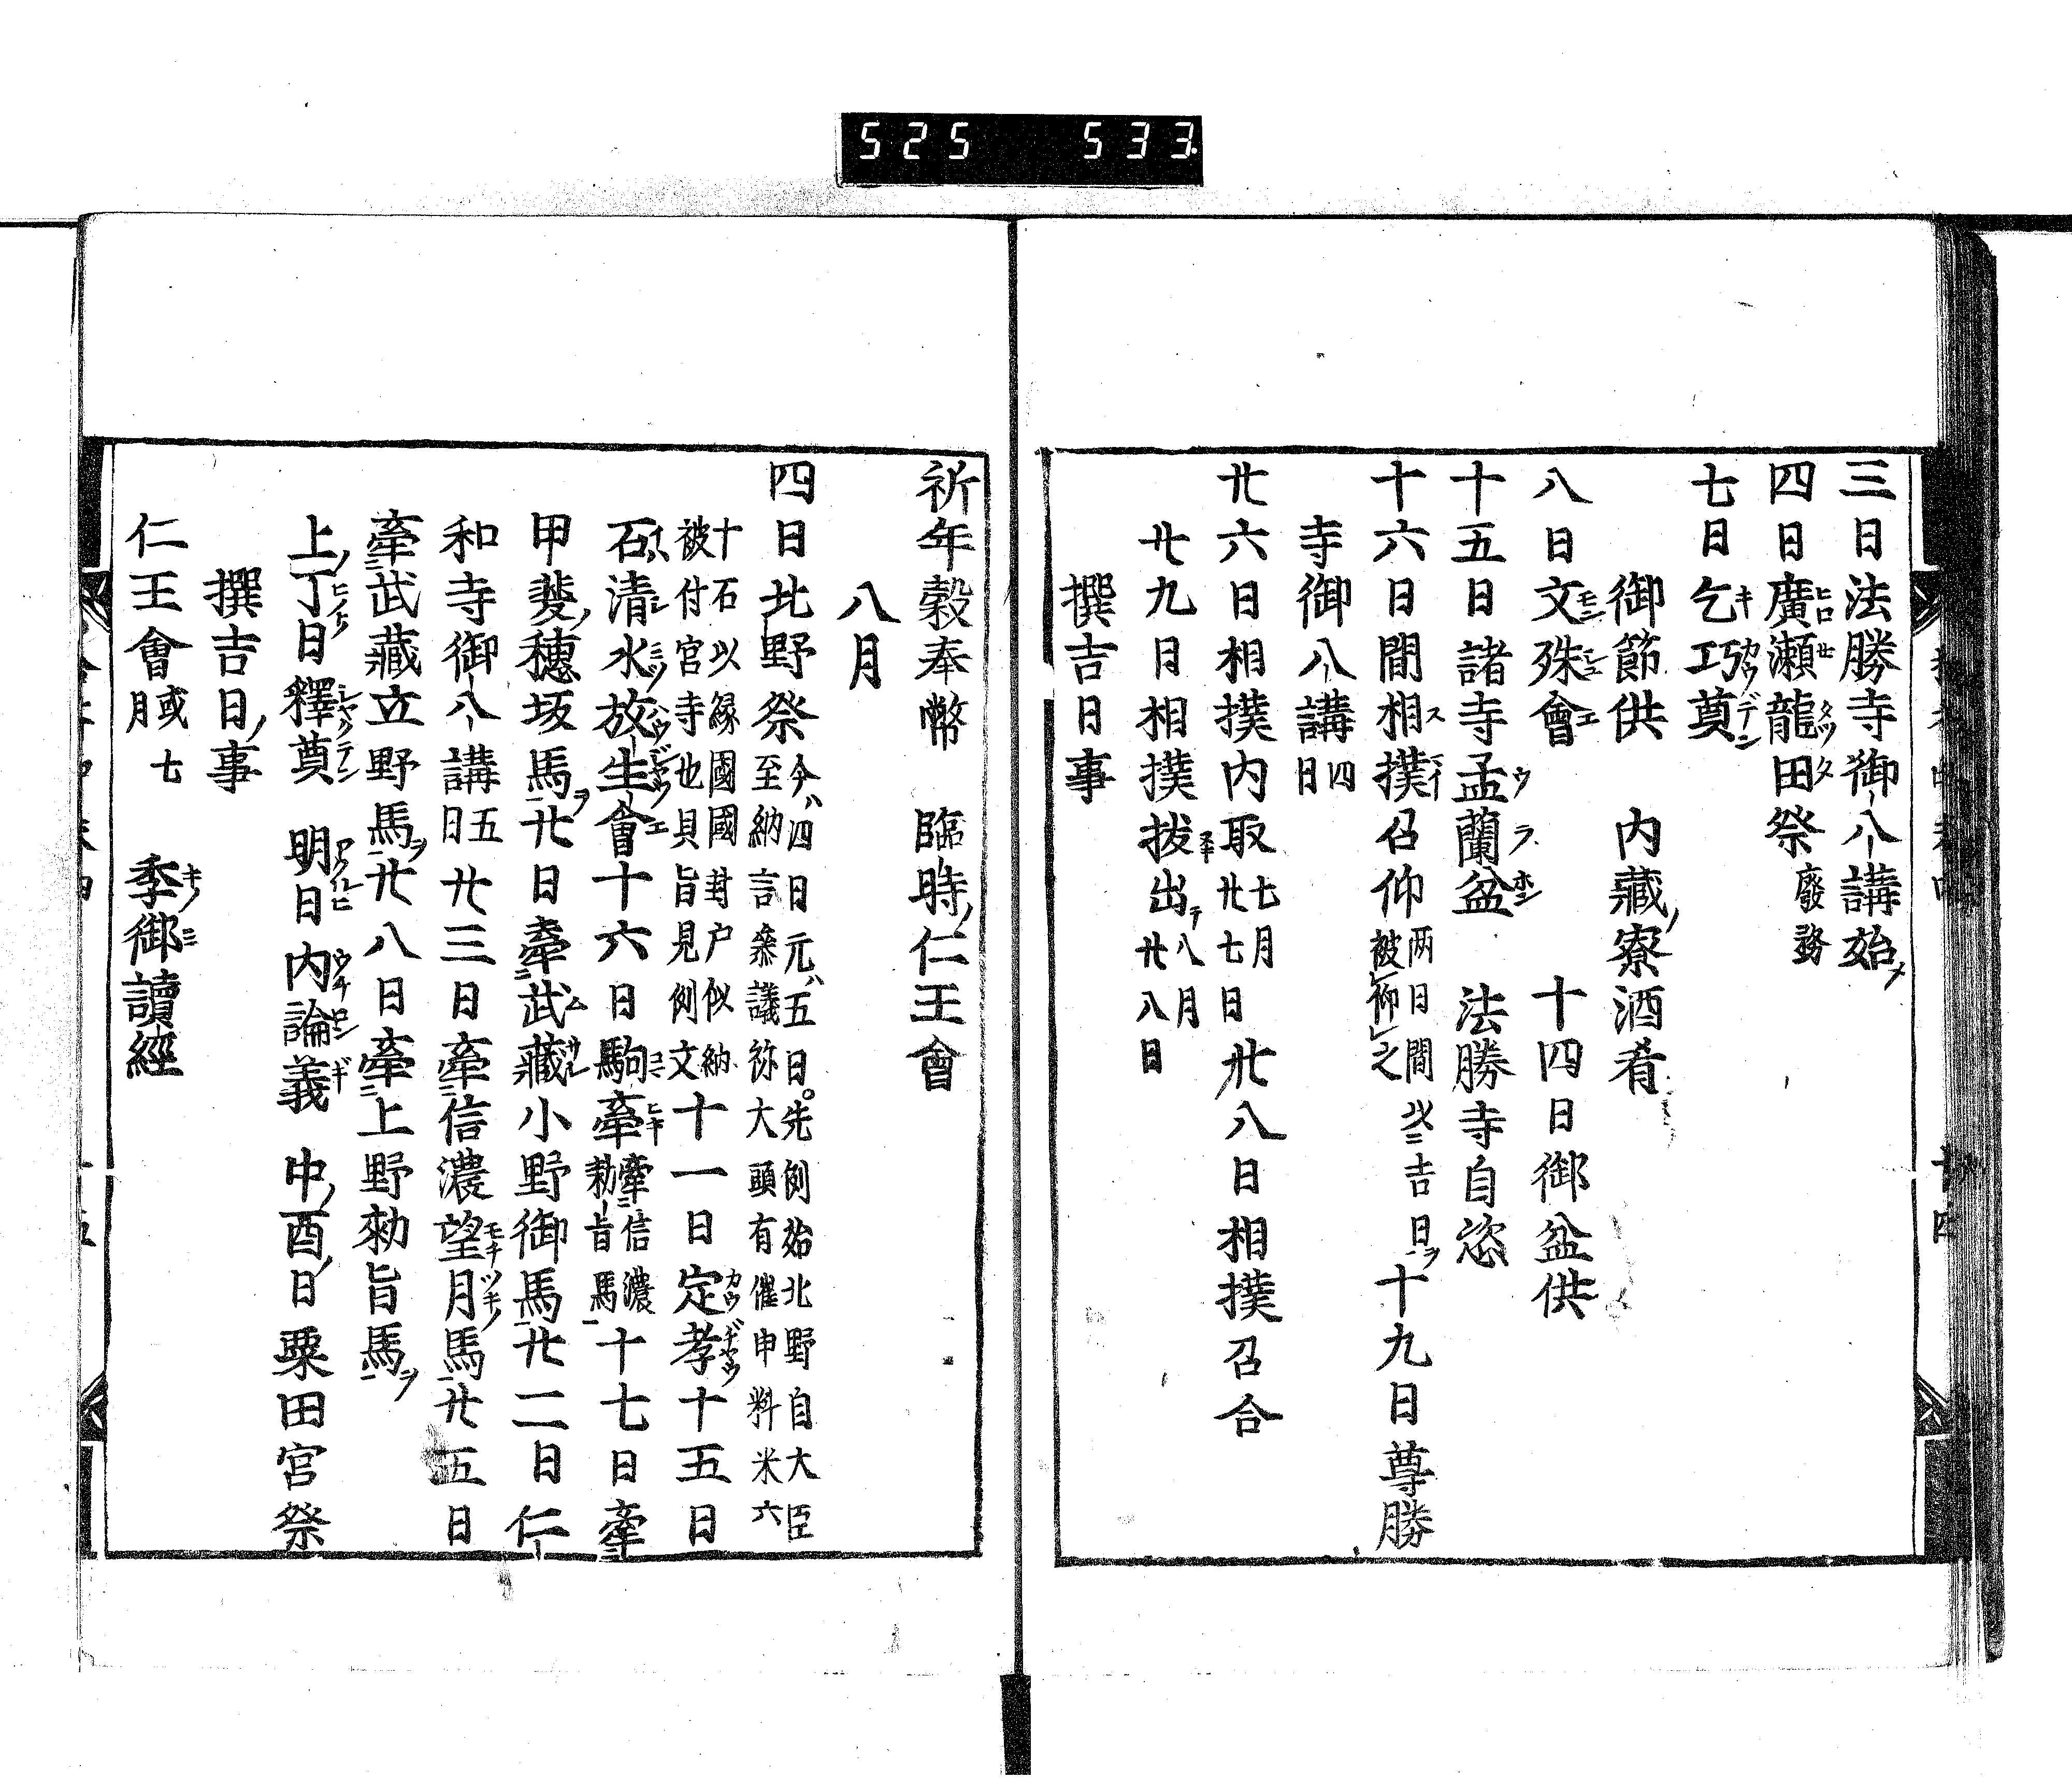 525 533
三日法勝寺御八講始
四日廣瀬龍田祭 廢務
七日乞巧奠
御節供 内藏寮酒肴
八日文殊會 十四日御盆供
十五日諸寺盂蘭盆 法勝寺自恣
十六日間相撲召仰 两日間以吉日被仰之 十九日尊勝
寺御八講 四日
廿六日相撲内取 七月廿七日 廿八日相撲召合
廿九日相撲拔出 八月廿八日
撰吉日事
祈年穀奉幣 臨時仁王會
八月
四日北野祭 今八四日元八五日先例始北野自大臣至納言叅議弥大頭有催申料米六
十石以緑國國封戸似納被付官寺也具旨見例文 十一日定孝 十五日
石清水放生會 十六日駒牽 牽信濃勅旨馬 十七日牽
甲斐穗坂馬 廿日牽武藏小野御馬 廿二日仁
和寺御八講 五日 廿三日牽信濃望月馬 廿五日
牽武藏立野馬 廿八日牽上野勅旨馬
上丁日釋奠 明日内論義 中酉日粟田宮祭
撰吉日事
仁王會 或七月 季御讀經